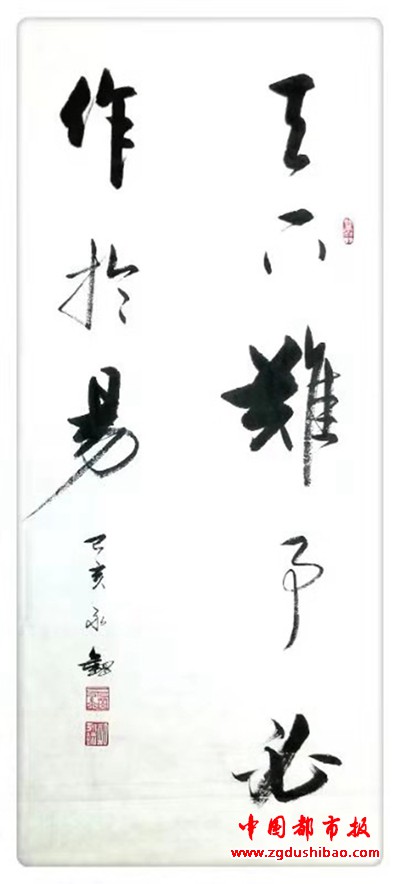 天下難事必
作於易
己亥永
中国都市报
www.zgdushibao.com